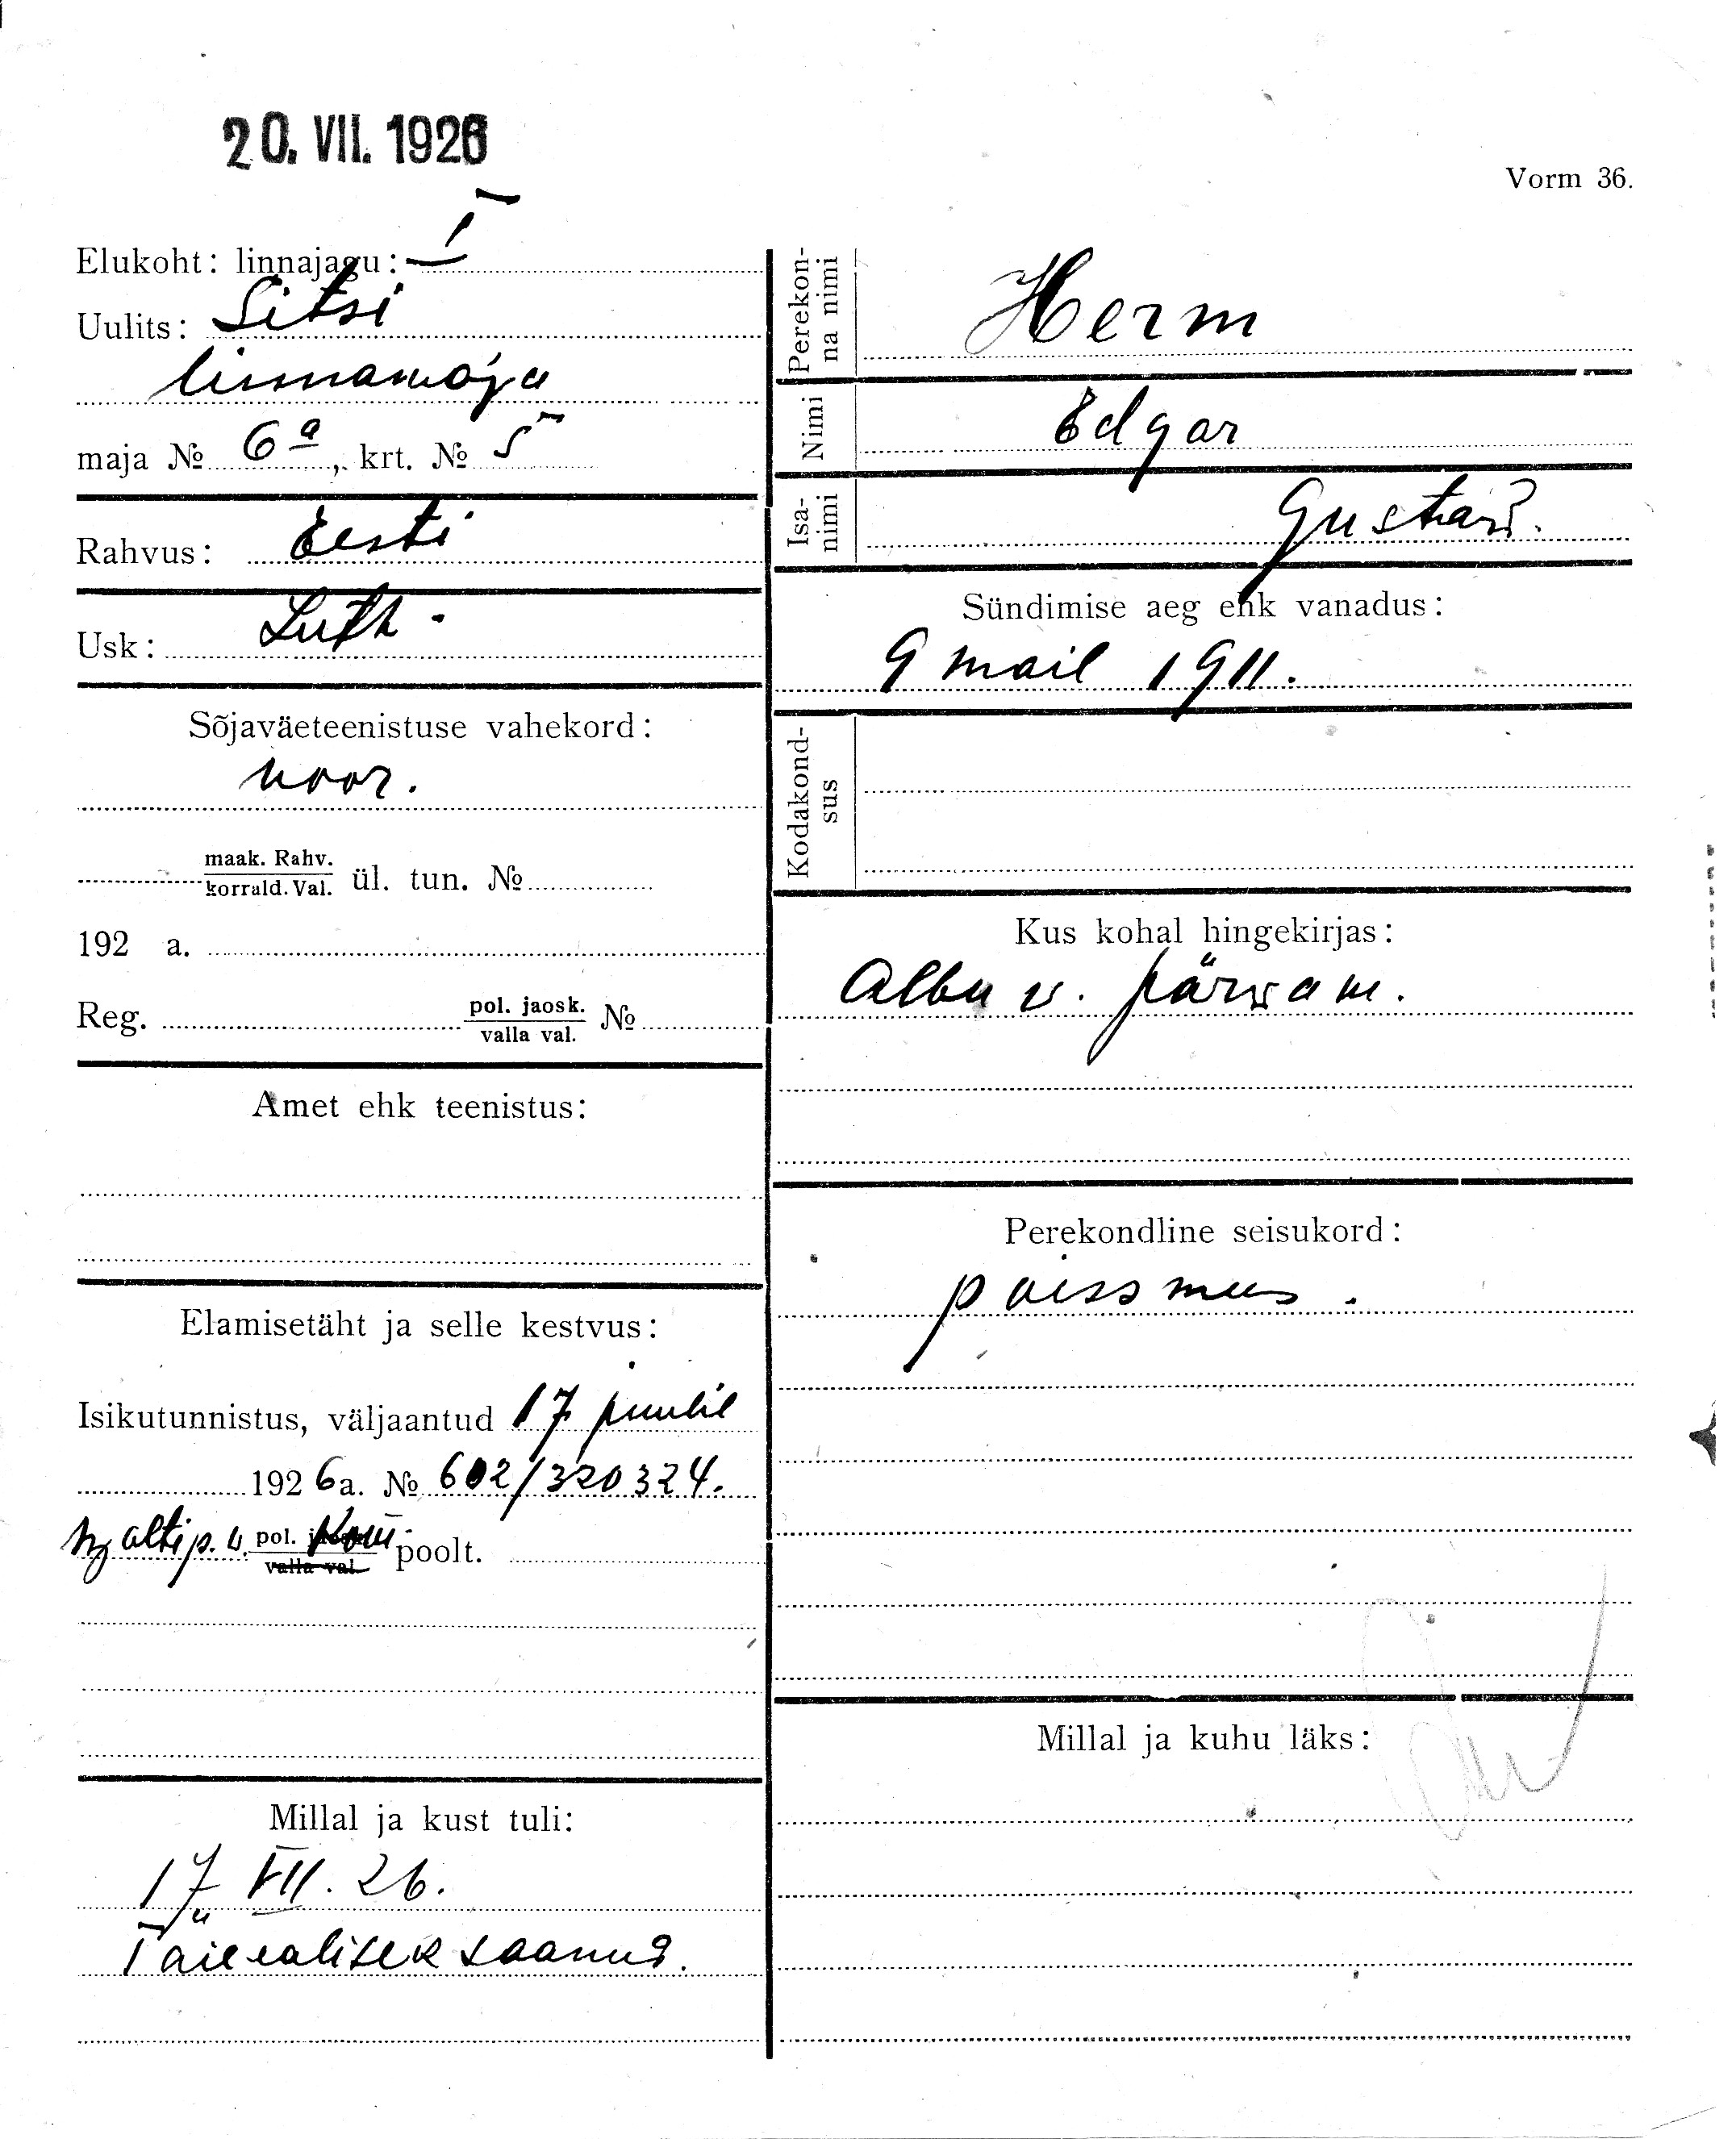 20. VII. 1926
Vorm 36.
Elukoht: linnajagu: I
Uulits: Sitsi
linnamaja
maja № 6a, krt. № 5
Rahvus: Eesti
Usk: Luth.
Sõjaväeteenistuse vahekord:
noor.
maak. Rahv.
korrald. Val. ül. tun. №
192 a.
Reg. pol. jaosk.
valla val. №
Amet ehk teenistus:
Elamisetäht ja selle kestvus:
Isikutunnistus, väljaantud 17 juulil
1926a. № 602/320324.
p. v. pol. Kom. poolt.
valla val.
Millal ja kust tuli:
17 VII. 26.
Täiealisek saanud.
Perekon-
na nimi
Herm
Nimi
Edgar
Isa-
nimi
Gustav.
Sündimise aeg ehk vanadus:
9 mail 1911.
Kodakond-
sus
Kus kohal hingekirjas:
Albu v. Järwam.
Perekondline seisukord:
poissmees.
Millal ja kuhu läks: